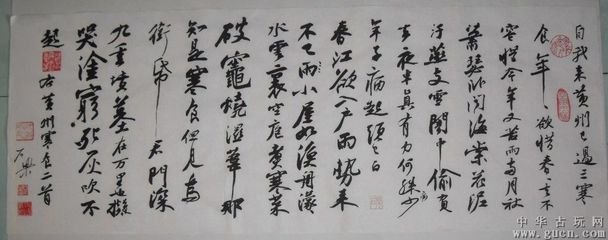 自我来黄州已過三寒
食年々欲惜春々去不
容惜今年又苦雨兩月秋
蕭瑟卧聞海棠花泥
汙燕支雪闇中偷負
去夜半真有力何殊少
年子病起頭已白
春江欲入户雨勢来
不已雨小屋如漁舟濛々
水雲裏空庖煮寒菜
破竈燒濕葦那
知是寒食但見烏
銜帋君門深
九重墳墓在万里也擬
哭塗窮死灰吹不
起 右黄州寒食二首
中华古玩网
www.gucn.com